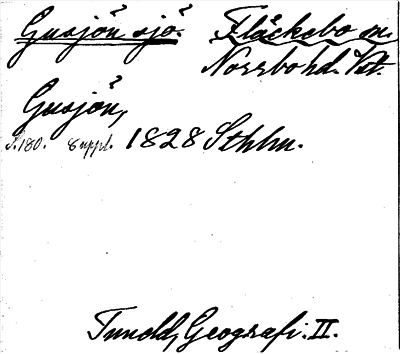 Gusjön sjö. Fläckebo sn.
Norrbo hd. Vstm.
Gusjön,
s. 180. 8 uppl. 1828 Sthlm.
Tuneld, Geografi. II.